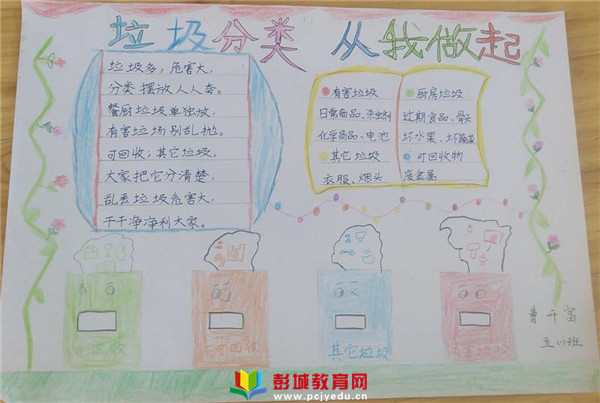 垃圾分类 从我做起
垃圾多,危害大,
分类摆放人人夸。
餐厨垃圾单独放,
有害垃圾别乱抛。
可回收,其它垃圾,
大家把它分清楚,
乱丢垃圾危害大,
干干净净利大家。
有害垃圾
日常商品、杀虫剂
化学商品、电池
其它垃圾
衣服、烟头
厨房垃圾
过期食品、骨头
坏水果、坏蔬菜
可回收物
废金属
可回收
其它垃圾
五(1)班
彭城教育网
www.pcjyedu.cn